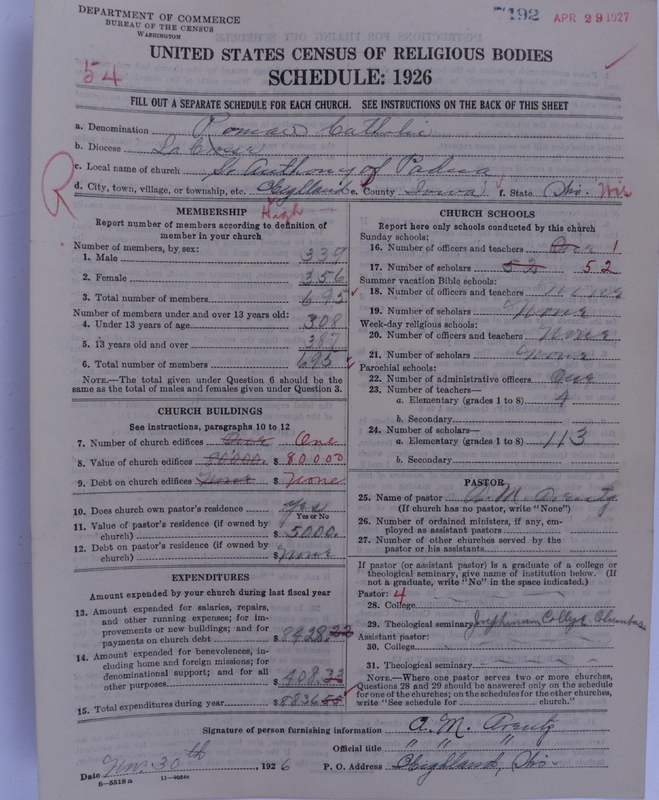 DEPARTMENT OF COMMERCE
BUREAU OF THE CENSUS
WASHINGTON
7192 APR 29 1927
UNITED STATES CENSUS OF RELIGIOUS BODIES
SCHEDULE: 1926
54
FILL OUT A SEPARATE SCHEDULE FOR EACH CHURCH. SEE INSTRUCTIONS ON THE BACK OF THIS SHEET
a. Denomination Roman Catholic
b. Diocese La Crosse
c. Local name of church St. Anthony of Padua
R
d. City, town, village, or township, etc. Highland e. County Iowa f. State Wis. Wis
High
MEMBERSHIP
Report number of members according to definition of
member in your church
Number of members, by sex:
1. Male 339
2. Female 356
3. Total number of members 695
Number of members under and over 13 years old:
4. Under 13 years of age 308
5. 13 years old and over 387
6. Total number of members 695
NOTE.—The total given under Question 6 should be
same as the total of males and females given under Question 3.
CHURCH BUILDINGS
See instructions, paragraphs 10 to 12
7. Number of church edifices One
8. Value of church edifices 80'000. $ 80000
9. Debt on church edifices None $ None
10. Does church own pastor's residence Yes
Yes or No
11. Value of pastor's residence (if owned by
church) $ 5000.
12. Debt on pastor's residence (if owned by
church) $ None
EXPENDITURES
Amount expended by your church during last fiscal year
13. Amount expended for salaries, repairs,
and other running expenses; for im-
provements or new buildings; and for
payments on church debt $ 8428.22
14. Amount expended for benevolences, in-
cluding home and foreign missions; for
denominational support; and for all
other purposes $ 408.33
15. Total expenditures during year $ 8836.55
CHURCH SCHOOLS
Report here only schools conducted by this church
Sunday schools:
16. Number of officers and teachers One 1
17. Number of scholars 52 52
Summer vacation Bible schools:
18. Number of officers and teachers None
19. Number of scholars None
Week-day religious schools:
20. Number of officers and teachers None
21. Number of scholars None
Parochial schools:
22. Number of administrative officers One
23. Number of teachers—
a. Elementary (grades 1 to 8) 4
b. Secondary
24. Number of scholars—
a. Elementary (grades 1 to 8) 113
b. Secondary
PASTOR
25. Name of pastor A. M. Arentz
(If church has no pastor, write "None")
26. Number of ordained ministers, if any, em-
ployed as assistant pastors
27. Number of other churches served by the
pastor or his assistants
If pastor (or assistant pastor) is a graduate of a college or
theological seminary, give name of institution below. (If
not a graduate, write "No" in the space indicated.)
Pastor: 4
28. College
29. Theological seminary Josephinum College, Columbus
Assistant pastor:
30. College
31. Theological seminary
NOTE.—Where one pastor serves two or more churches,
Questions 28 and 29 should be answered only on the schedule
for one of the churches; on the schedules for the other churches,
write "See schedule for church."
Signature of person furnishing information A. M. Arentz
Official title " " "
Date Nov. 30th, 1926 P. O. Address Highland, Wis.
8—5518 a 11—9054